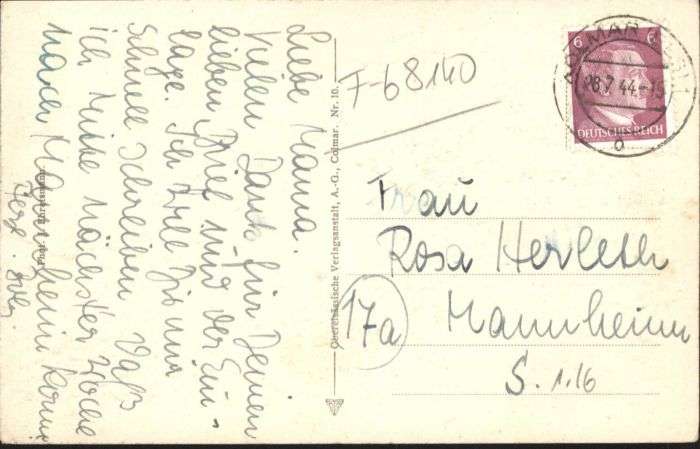 Liebe Mamma.
Vielen Dank für Deinen
lieben Brief und der Ein-
lage. Ich will Dir nur
schnell schreiben daß
ich Mitte nächster Woche
nach Mannheim komme
Herzl.
F-68140
COLMAR
28.7.44
b
6 6
DEUTSCHES REICH
Frau
Rosa Herleth
17a
Mannheim
S. 1.16
Oberelsässische Verlagsanstalt, A.-G., Colmar. Nr. 10.